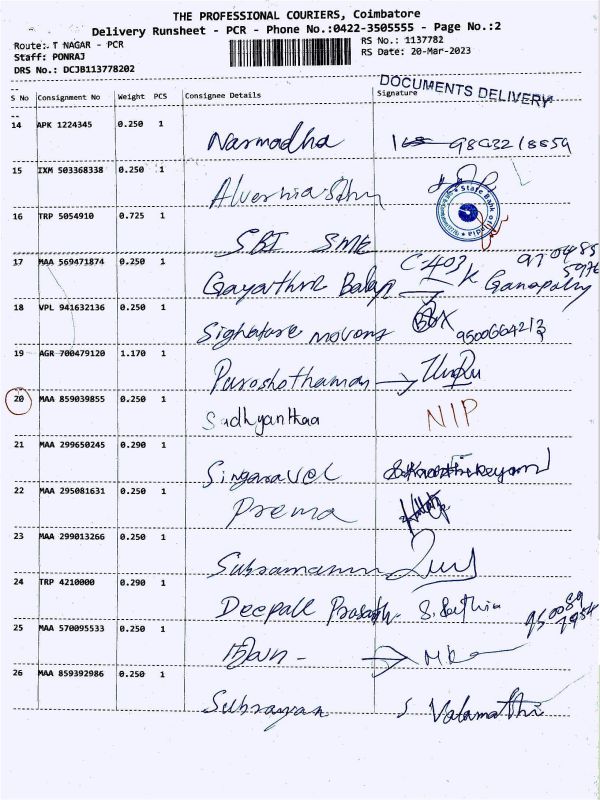 THE PROFESSIONAL COURIERS, Coimbatore
Delivery Runsheet - PCR - Phone No.:0422-3505555 - Page No.:2
Route: T NAGAR - PCR
Staff: PONRAJ
DRS No.: DCJB113778202
RS No.: 1137782
RS Date: 20-Mar-2023
DOCUMENTS DELIVERY
S No Consignment No Weight PCS Consignee Details Signature
14 APK 1224345 0.250 1 Narmadha
15 IXM 503368338 0.250 1
State Bank of India
16 TRP 5054910 0.725 1 SBI SME
17 MAA 569471874 0.250 1 Gayathri Balaji C-403 K Ganapathy
18 VPL 941632136 0.250 1 Signature movons 9500664213
19 AGR 700479120 1.170 1 Puroshothaman
20 MAA 859039855 0.250 1 Sadhyanthaa NIP
21 MAA 299650245 0.290 1 Singaravel S. Kaarthikeyan
22 MAA 295081631 0.250 1 Prema
23 MAA 299013266 0.250 1
24 TRP 4210000 0.290 1 Deepak Prasath S. Sathia
25 MAA 570095533 0.250 1
26 MAA 859392986 0.250 1 Subrayan S Valamathi